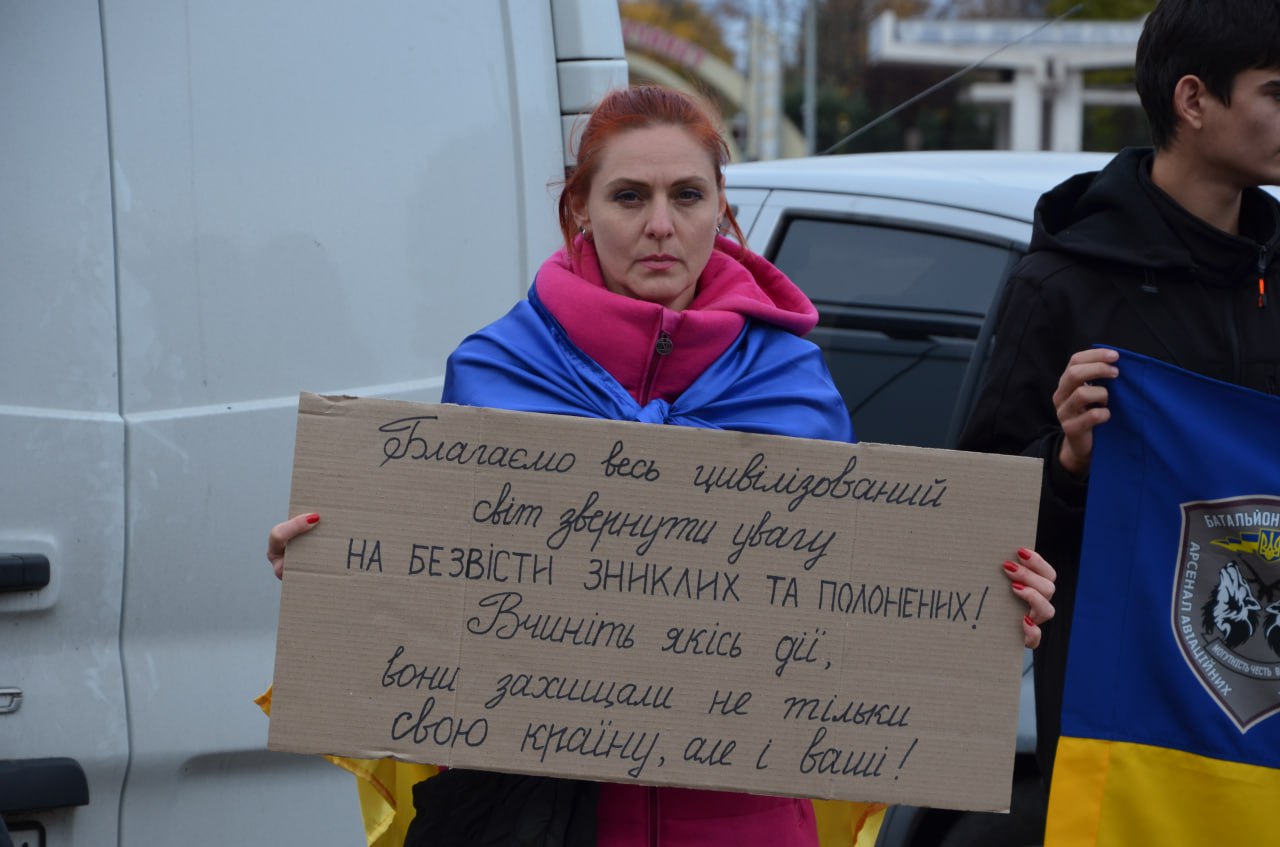 Благаємо весь цивілізований
світ звернути увагу
НА БЕЗВІСТИ ЗНИКЛИХ ТА ПОЛОНЕНИХ!
Вчиніть якісь дії,
вони захищали не тільки
свою країну, але і ваші!
БАТАЛЬЙОН
АРСЕНАЛ АВІАЦІЙНИХ
МОГУТНІСТЬ ЧЕСТЬ